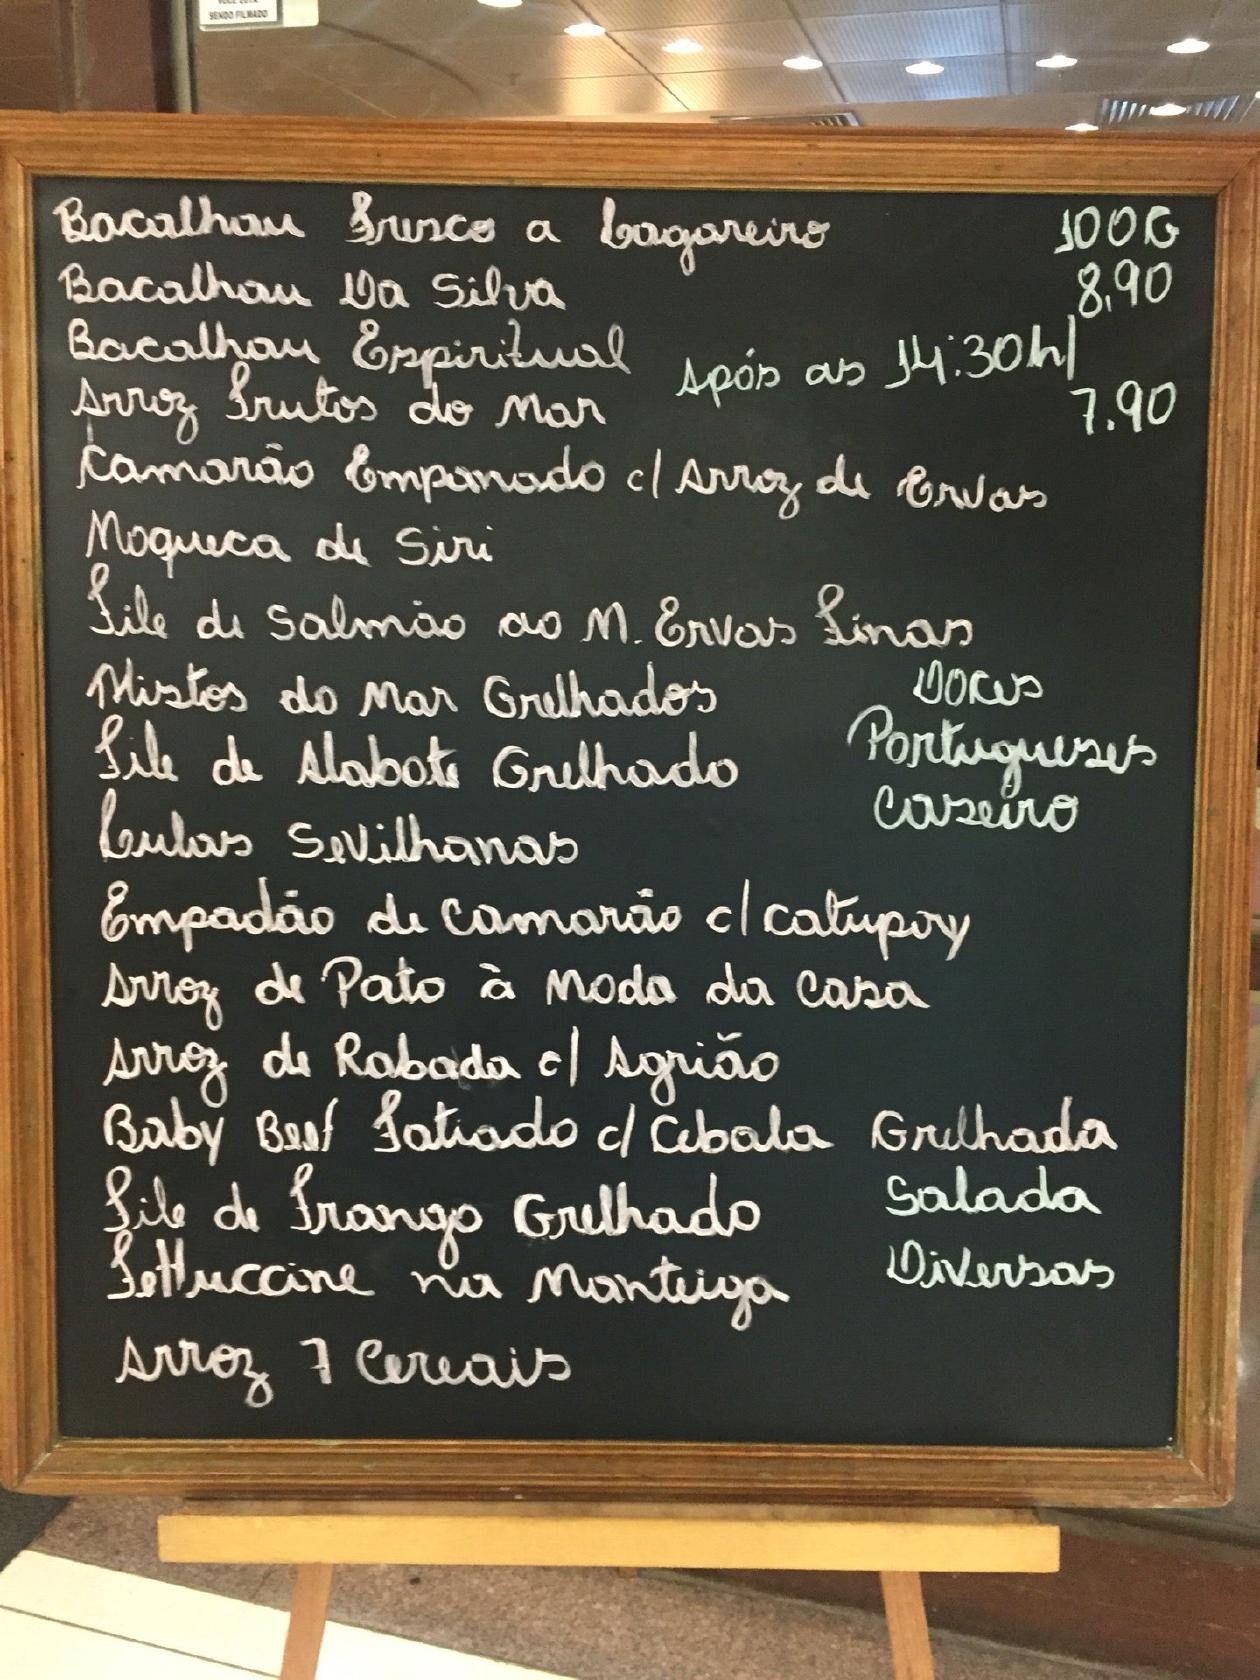 VOCÊ ESTÁ
SENDO FILMADO
Bacalhau Fresco a Lagareiro 100G
Bacalhau Da Silva 8,90
Bacalhau Espiritual Após as 14:30h/
Arroz Frutos do Mar 7.90
Camarão Empanado c/ Arroz de Ervas
Moqueca de Siri
File de Salmão ao M. Ervas Finas
Mistos do Mar Grelhados Doces
File de Alabote Grelhado Portugueses
Caseiro
Lulas Sevilhanas
Empadão de Camarão c/ Catupory
Arroz de Pato à Moda da Casa
Arroz de Rabada c/ Agrião
Baby Beef Fatiado c/ Cebola Grelhada
File de Frango Grelhado Salada
Fettuccine na Manteiga Diversas
Arroz 7 Cereais